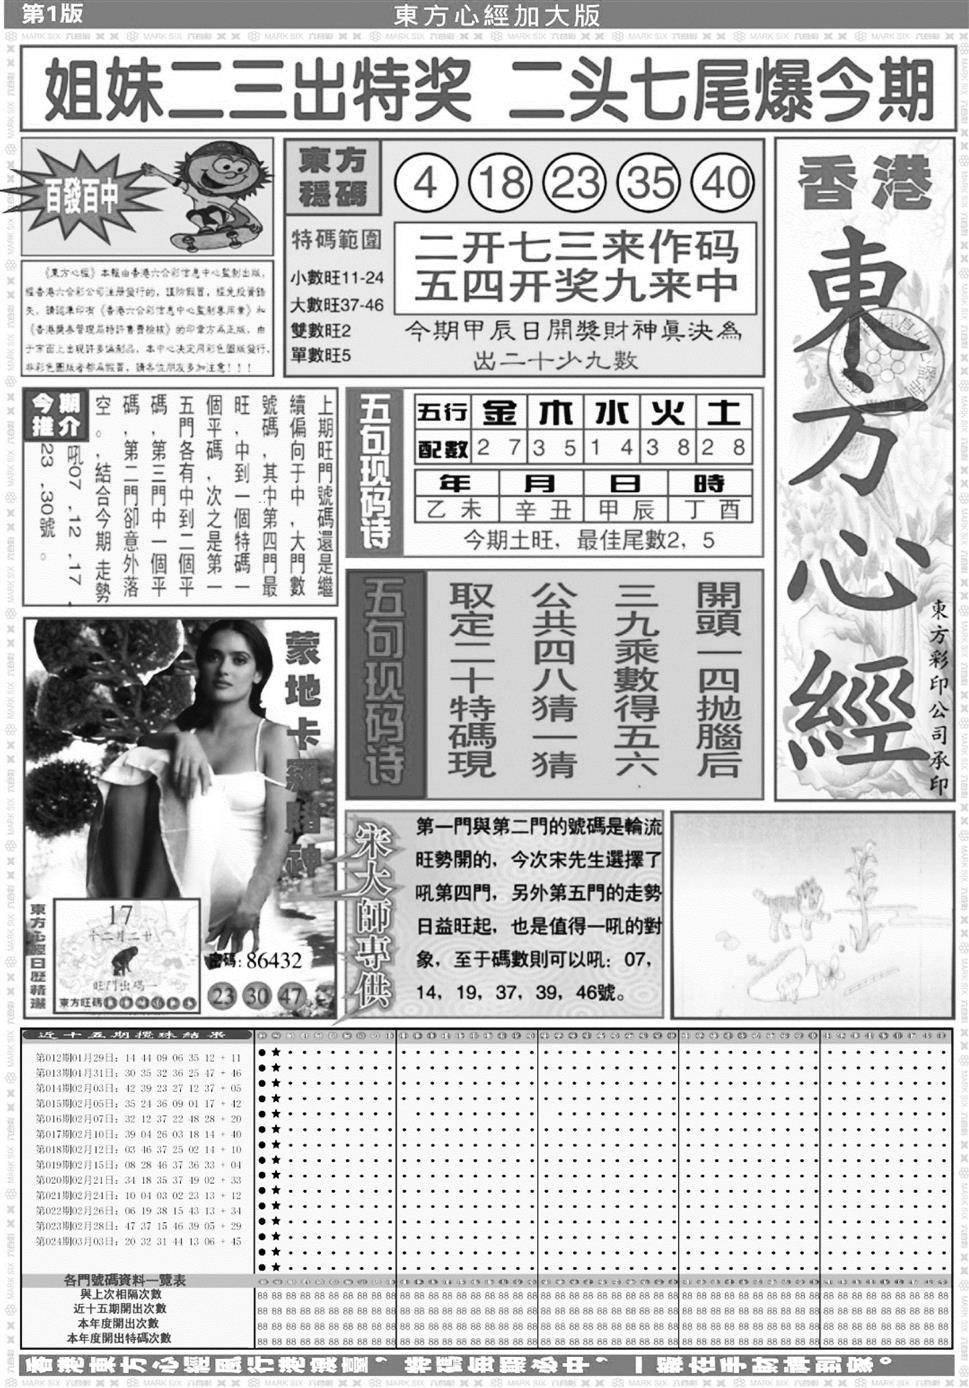 第1版
東方心經加大版
姐妹二三出特奖 二头七尾爆今期
百發百中
《東方心經》本報由香港六合彩信息中心監制出版，
經香港六合彩公司注册發行的，謹防假冒，經先投資錯
失。請認準印有《香港六合彩信息中心監制專用章》和
《香港獎券管理局特許書費檢核》的印章方爲正版，由
于市面上出現許多偽制品，本中心決定用彩色圖版發行，
非彩色圖版者都爲假冒，請各位朋友多加注意！！！
東方
穩碼
4 18 23 35 40
特碼範圍
小數旺11-24
大數旺37-46
雙數旺2
單數旺5
二开七三来作码
五四开奖九来中
今期甲辰日開獎財神眞決為
出二十少九數
香港
東方心經
東方彩印公司承印
今期
推介
上期旺門號碼還是繼
續偏向于中，大門數
號碼，其中第四門最
旺，中到一個特碼一
個平碼，次之是第一
五門各有中到二個平
碼，第三門中一個平
碼，第二門卻意外落
空。結合今期走勢
吼07，12，17，
23，30號。
五句现码诗
五行 金 木 水 火 土
配數 2 7 3 5 1 4 3 8 2 8
年 月 日 時
乙未 辛丑 甲辰 丁酉
今期土旺，最佳尾數2，5
五句现码诗
開頭一四拋腦后
三九乘數得五六
公共四八猜一猜
取定二十特碼現
蒙地卡羅賭神
東方心經日歷精選
17
十二月二廿
旺門出碼一
東方旺碼
密碼：86432
23 30 47
宋大師專供
第一門與第二門的號碼是輪流
旺勢開的，今次宋先生選擇了
吼第四門，另外第五門的走勢
日益旺起，也是值得一吼的對
象，至于碼數則可以吼：07，
14，19，37，39，46號。
近十五期攪珠結果
第012期01月29日：14 44 09 06 35 12 + 11
第013期01月31日：30 35 32 36 25 47 + 46
第014期02月03日：42 39 23 27 12 37 + 05
第015期02月05日：35 24 36 09 01 17 + 42
第016期02月07日：32 12 37 22 48 28 + 20
第017期02月10日：39 04 26 03 18 14 + 40
第018期02月12日：03 46 37 25 02 14 + 10
第019期02月15日：08 28 46 37 36 33 + 04
第020期02月21日：34 18 35 37 49 02 + 33
第021期02月24日：10 04 03 02 23 13 + 12
第022期02月26日：06 19 38 15 43 13 + 34
第023期02月28日：47 37 15 46 39 05 + 29
第024期03月03日：20 32 31 44 13 06 + 45
各門號碼資料一覽表
與上次相隔次數
近十五期開出次數
本年度開出次數
本年度開出特碼次數
香港東方心經風行港澳臺，特碼每期必中，一報在手財神到家。